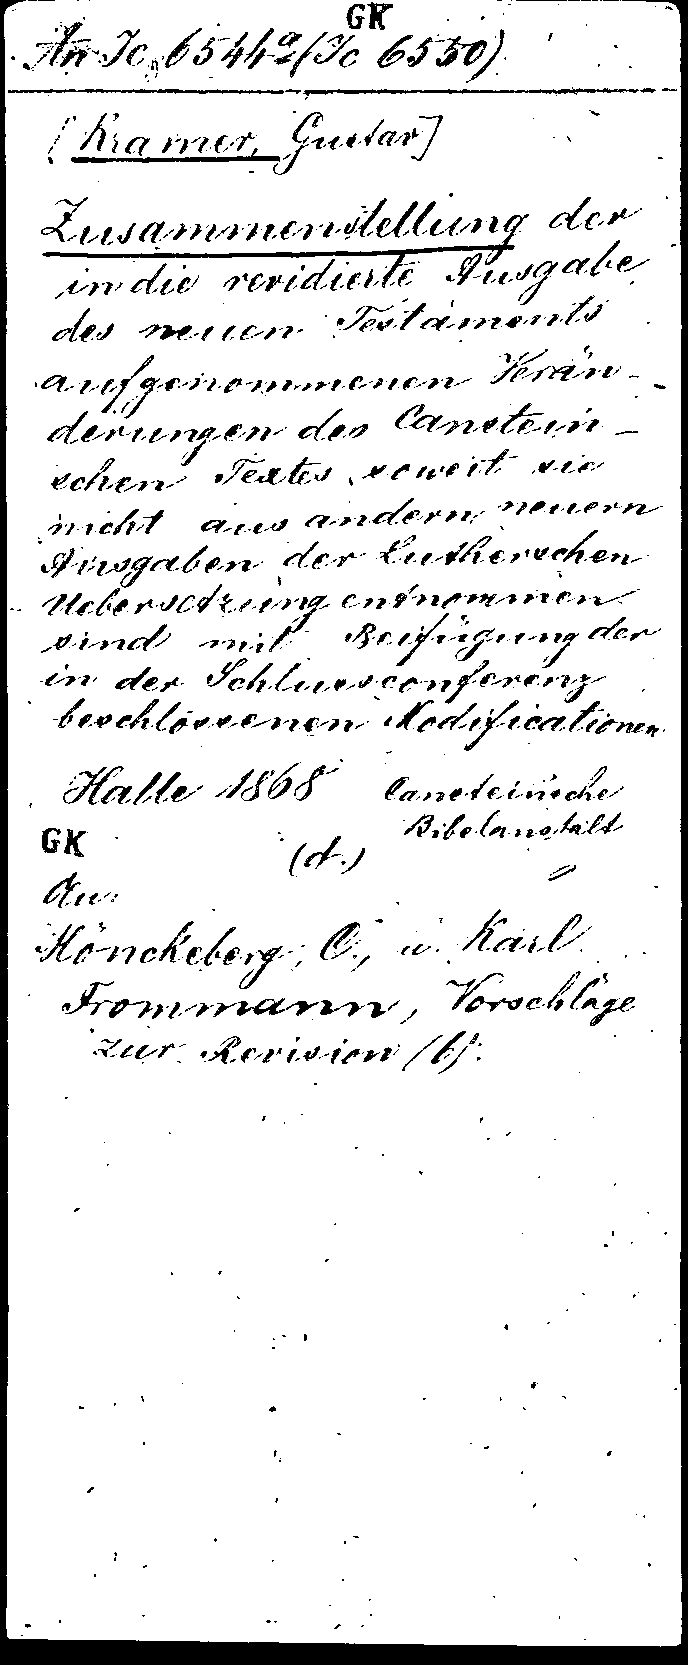 GK
An Ic 6544a (Ic 6550)
[Kramer, Gustav]
Zusammenstellung der
in die revidierte Ausgabe
des neuen Testaments
aufgenommenen Verän-
derungen des Canstein-
schen Textes, soweit sie
nicht aus andern neuern
Ausgaben der Lutherschen
Uebersetzung entnommen
sind mit Beifügung der
in der Schlussconferenz
beschlossenen Modificationen
Halle 1868 Cansteinische
Bibelanstalt
GK
(d.)
An:
Mönckeberg, C., u. Karl
Frommann, Vorschläge
zur Revision (6).